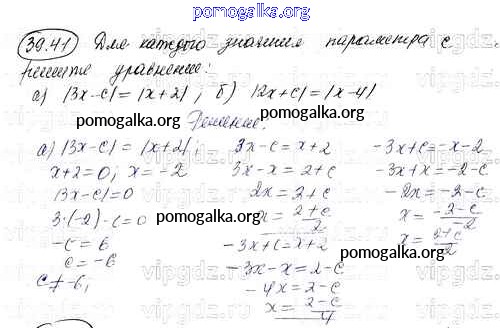 pomogalka.org
39.41 Для каждого значения параметра c
решите уравнение:
а) |3x-c|=|x+2|; б) |2x+c|=|x-4|
pomogalka.org pomogalka.org
Решение:
а) |3x-c|=|x+2|;
x+2=0; x=-2
|3x-c|=0
3·(-2)-c=0
-c=6
c=-6
c≠-6,
3x-c=x+2
3x-x=2+c
2x=2+c
x=(2+c)/2
-3x+c=x+2
-3x-x=2-c
-4x=2-c
x=(2-c)/4
-3x+c=-x-2
-3x+x=-2-c
-2x=-2-c
x=(-2-c)/-2
x=(2+c)/2
pomogalka.org
pomogalka.org
pomogalka.org
vipgdz.ru